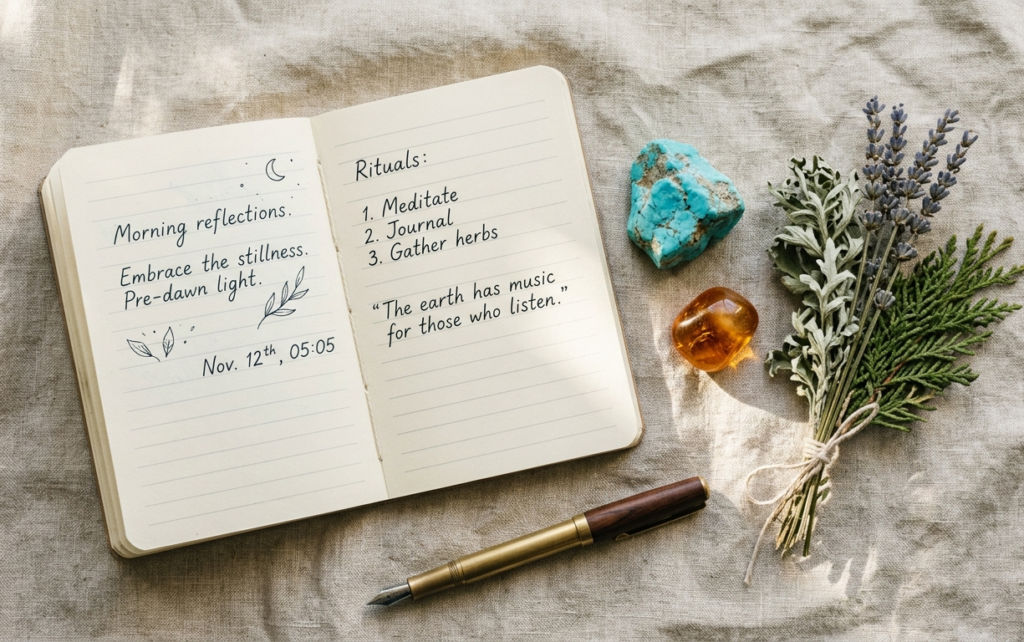 Morning reflections.
Embrace the stillness.
Pre-dawn light.
Nov. 12th, 05:05
Rituals:
1. Meditate
2. Journal
3. Gather herbs
“The earth has music
for those who listen.”